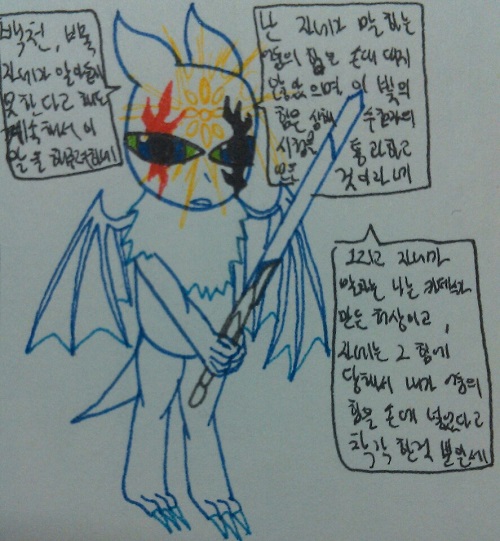 백천, 비록
자네가 알아듣지
못 한다고 해도
계속해서 이
말을 해주려하네
난 자네가 말 하는
어둠의 힘은 손대 대지
않았으며 이 빛의
힘은
시험을 통과하고
얻은 것이라네
그리고 자네가
말하는 나는 카데스가
만든 허상이고,
자네는 그 힘에
당해서 내가 어둠의
힘을 손에 넣었다고
착각 한걸 뿐일세